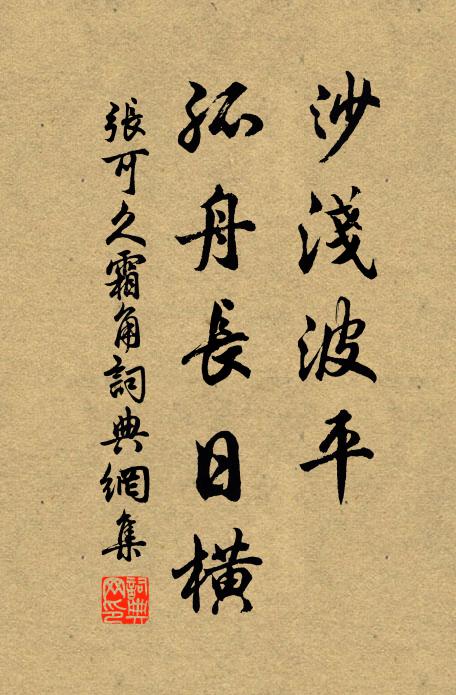 沙淺波平
孤舟長日橫
張可久霜角詞典網集
詞典網印